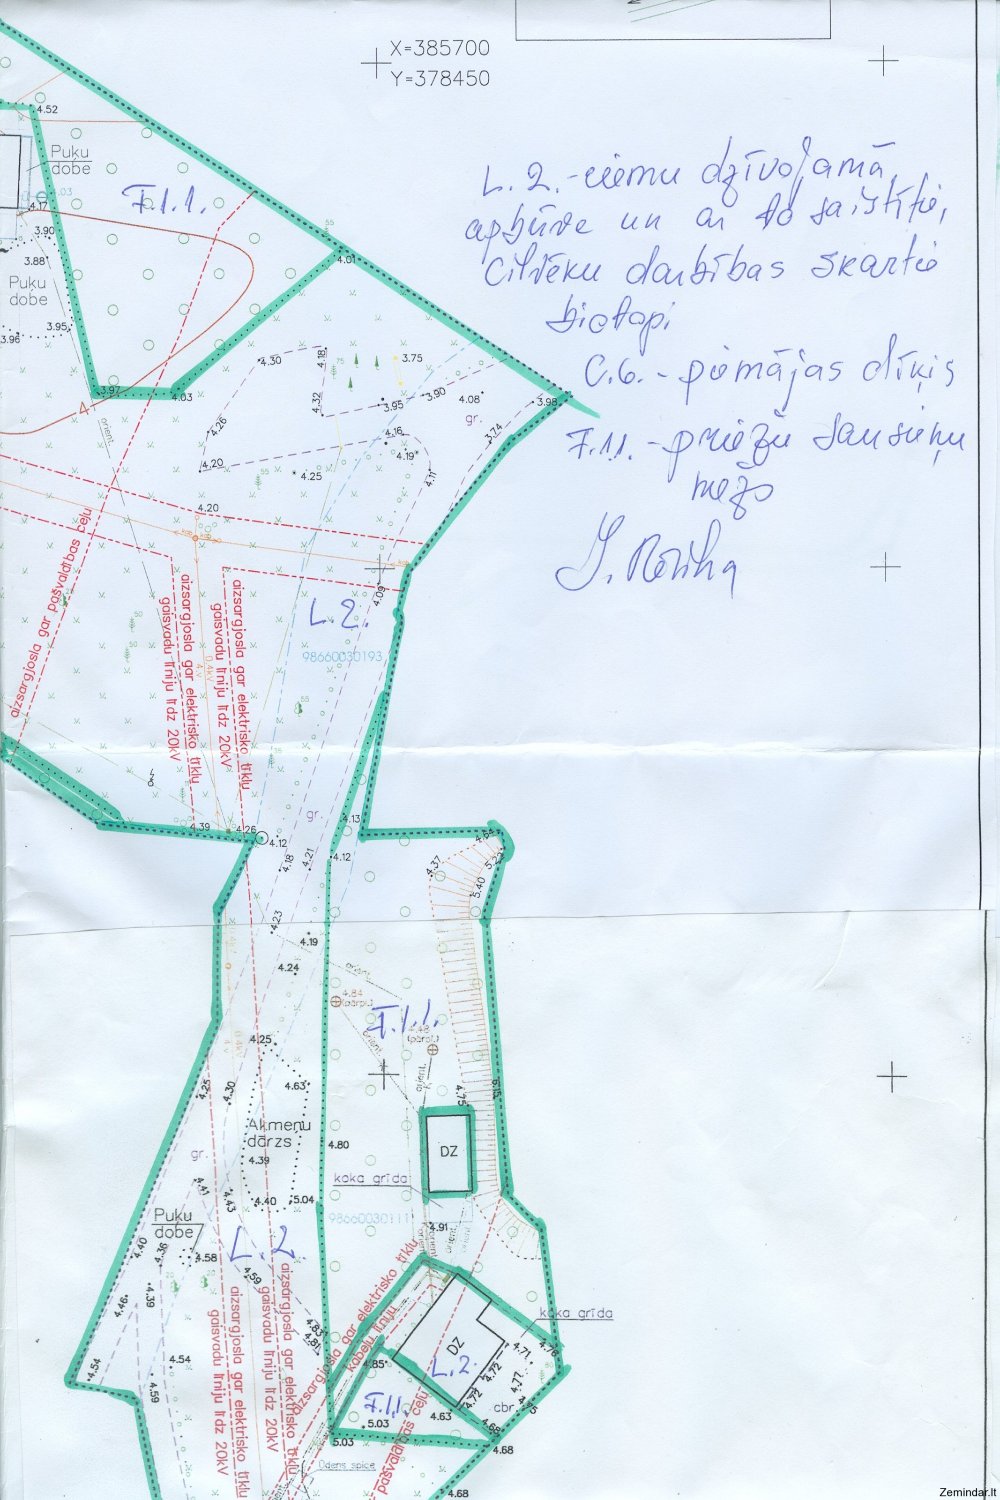 X=385700
Y=378450
L.2.-ciemu dzīvojamā
apbūve un ar to saistītie,
Cilvēku darbības skartie
biotopi
C.6.-piemājas dīķis
F.1.1.-priežu sausieņu
mežs
4.52
Puķu
dobe
F.1.1.
4.17
3.90
3.88
Puķu
dobe
3.95
3.96
4.01
3.97
4.03
4
orient.
4.30
4.18
3.75
4.32
3.95
3.90
4.08
3.98
gr.
3.74
4.26
4.16
4.20
4.25
4.19
4.11
4.20
4.09
aizsargjosla gar pašvaldības ceļu
aizsargjosla gar elektrisko tīklu
gaisvadu līniju līdz 20kV
aizsargjosla gar elektrisko tīklu
gaisvadu līniju līdz 20kV
0.4kV
L.2.
98660030193
gr.
4.39
4.26
4.12
4.13
4.12
4.18
4.21
4.64
5.22
4.37
5.40
4.23
4.19
4.24
orient.
4.84
(pārpl.)
F.1.1.
orient.
(pārpl.)
orient.
4.25
4.63
4.25
4.30
4.75
5.15
Akmeņu
dārzs
4.80
DZ
gr.
4.39
4.41
4.43
4.40
5.04
koka grīda
98660030111
4.91
Puķu
dobe
4.58
L.2
4.40
4.36
4.59
4.39
4.46
4.83
4.81
aizsargjosla gar elektrisko tīklu
gaisvadu līniju līdz 20kV
aizsargjosla gar elektrisko tīklu
gaisvadu līniju līdz 20kV
aizsargjosla gar elektrisko tīklu
kabeļu līniju
koka grīda
DZ
L.2
4.71
4.76
4.72
4.77
4.75
4.72
cbr.
4.54
4.54
4.59
4.85
F.1.1.
5.03
4.63
4.68
5.03
4.68
pašvaldības ceļu
Ūdens spice
4.68
Zemindar.lt